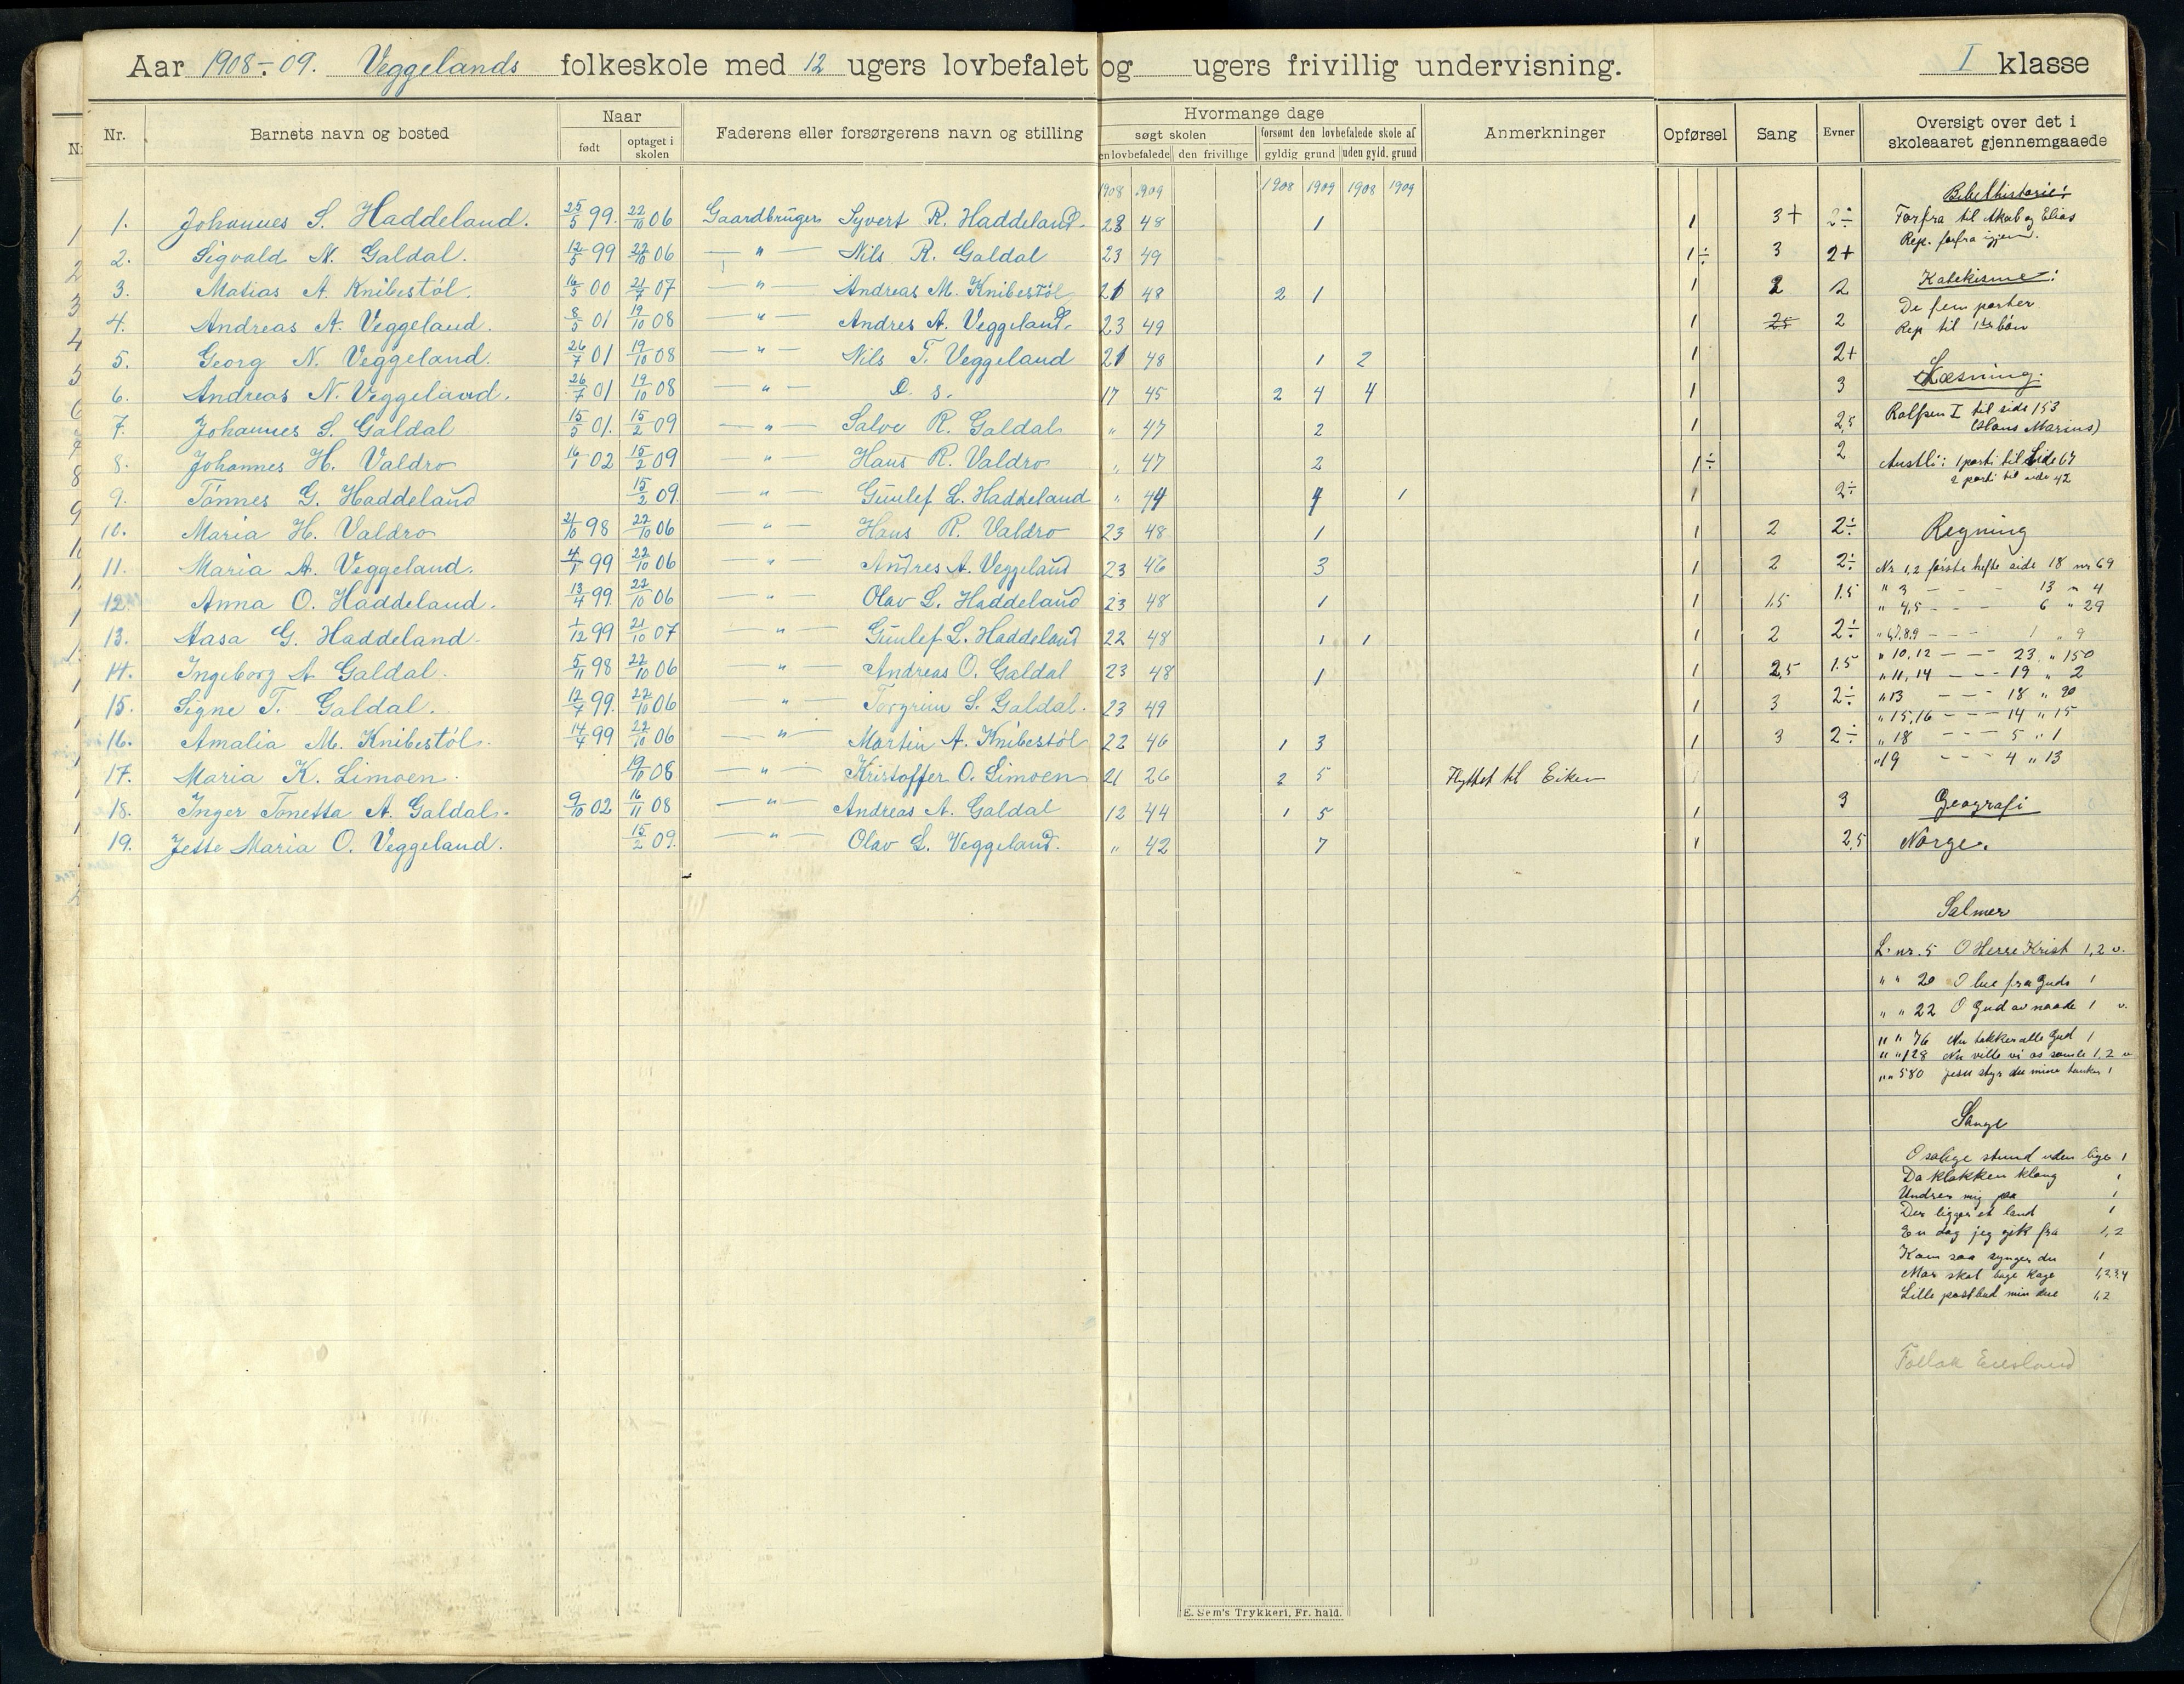 Aar 1908-09. Veggelands folkeskole med 12 ugers lovbefalet og ugers frivillig undervisning. I klasse
Nr. Barnets navn og bosted Naar født optaget i skolen Faderens eller forsørgerens navn og stilling Hvormange dage søgt skolen den lovbefalede den frivillige forsømt den lovbefalede skole af gyldig grund uden gyld. grund Anmerkninger Opførsel Sang Evner Oversigt over det i skoleaaret gjennemgaaede
1908 1909 1908 1909 1908 1909
1. Johannes S. Haddeland. 25/5 99. 22/10 06 Gaardbruger Syvert R. Haddeland. 23 48 1 1 3+ 2÷
2. Sigvald N. Galdal. 12/5 99 22/10 06 — " — Nils R. Galdal 23 49 1÷ 3 2+
3. Matias A. Knibestöl. 16/5 00 21/7 07 — " — Andreas M. Knibestöl 21 48 2 1 1 2 2
4. Andreas A. Veggeland. 8/5 01 19/10 08 — " — Andres A. Veggeland. 23 49 1 2,5 2
5. Georg N. Veggeland. 26/7 01 19/10 08 — " — Nils T. Veggeland 21 48 1 2 1 2+
6. Andreas N. Veggeland. 26/7 01 19/10 08 — " — D. s. 17 45 2 4 4 1 3
7. Johannes S. Galdal 15/5 01. 15/2 09 — " — Salve R. Galdal " 47 2 1 2,5
8. Johannes H. Valdro 16/1 02 15/2 09 — " — Hans R. Valdro " 47 2 1÷ 2
9. Tönnes G. Haddeland 15/2 09 — " — Gunlef L. Haddeland " 44 4 1 1 2÷
10. Maria H. Valdro 21/10 98 22/10 06 — " — Hans R. Valdro 23 48 1 1 2 2÷
11. Maria A. Veggeland. 4/1 99 22/10 06 — " — Andres A. Veggeland 23 46 3 1 2 2÷
12. Anna O. Haddeland. 13/4 99. 22/10 06 — " — Olav L. Haddeland 23 48 1 1 1,5 1,5
13. Aasa G. Haddeland. 1/12 99 21/10 07 — " — Gunlef L. Haddeland 22 48 1 1 1 2 2÷
14. Ingeborg A Galdal. 5/11 98 22/10 06 — " — Andreas O. Galdal 23 48 1 1 2,5 1,5
15. Signe T. Galdal. 12/7 99. 22/10 06 — " — Torgrim S. Galdal. 23 49 1 3 2÷
16. Amalia M. Knibestöl. 14/4 99 22/10 06 — " — Martin A. Knibestöl 22 46 1 3 1 3 2÷
17. Maria K. Limoen. 19/10 08 — " — Kristoffer O. Limoen 21 26 2 5 Flyttet til Eiken
18. Inger Tonetta A. Galdal. 9/10 02 16/11 08 — " — Andreas A. Galdal 12 44 1 5 1 3
19. Jette Maria O. Veggeland. 15/2 09. — " — Olav L. Veggeland. " 42 7 1 2,5
Bibelhistorie:
Forfra til Akab og Elias
Rep. forfra igjen.
Katekisme:
De fem parter
Rep til 1ste bön
Læsning.
Rolfsen I til side 153
(Hans Marius)
Austli: 1 parti til side 67
2 parti til side 42
Regning
Nr 1,2 første hefte side 18 nr 69
" 3 - - - 13 " 4
" 4,5 - - - 6 " 29
" 6,7,8,9 - - - 1 " 9
" 10,12 - - - 23 " 150
" 11,14 - - - 19 " 2
" 13 - - - 18 " 90
" 15,16 - - - 14 " 15
" 18 - - - 5 " 1
" 19 - - 4 " 13
Geografi
Norge.
Salmer
L. nr. 5 O Herre Krist 1,2 v.
" " 20 O lue fra Guds 1
" " 22 O Gud av naade 1 v.
" " 76 Nu takker alle Gud 1
" " 128 Nu ville vi os samle 1,2 v
" " 580 Jesu styr du mine tanker 1
Sange
O salige stund uden lige 1
Da klokken klang 1
Undres mig paa 1
Der ligger et land 1
En dag jeg gik fra 1,2
Kom saa synger du 1
Mor skal bage kage 1,2,3,4
Lille postbud min due 1,2
E. Sem's Trykkeri, Fr. hald.